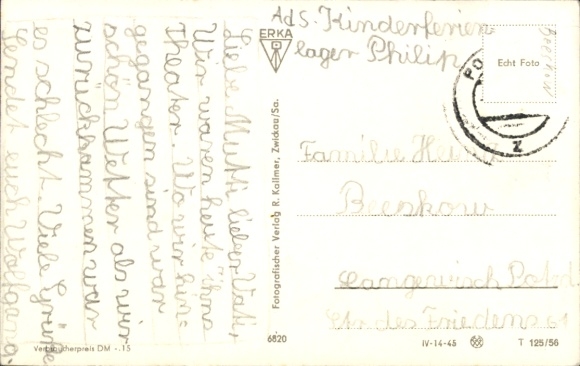 AdS. Kinderferien
lager Philip
Liebe Mutti lieber Vati,
Wir waren heute ins
Theater. Wo wir hin=
gegangen sind war
schön Wetter als wir
zurückkammen war
es schlecht. Viele Grüße
sendet euch Wolfgang.
ERKA
Echt Foto
PO
Z
Familie
Beeskow
Langerwisch
Str des Friedens 61
Fotografischer Verlag R. Kallmer, Zwickau/Sa.
6820
Verbraucherpreis DM -.15
IV-14-45
T 125/56